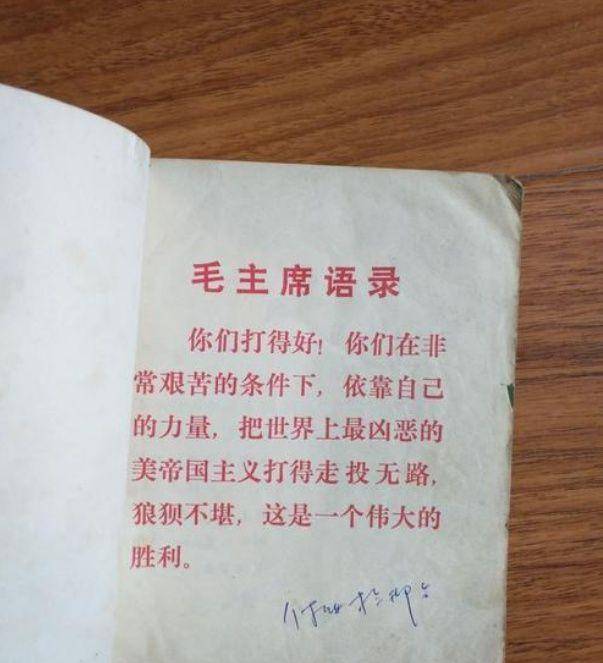 毛主席语录
你们打得好！你们在非
常艰苦的条件下，依靠自己
的力量，把世界上最凶恶的
美帝国主义打得走投无路，
狼狈不堪，这是一个伟大的
胜利。